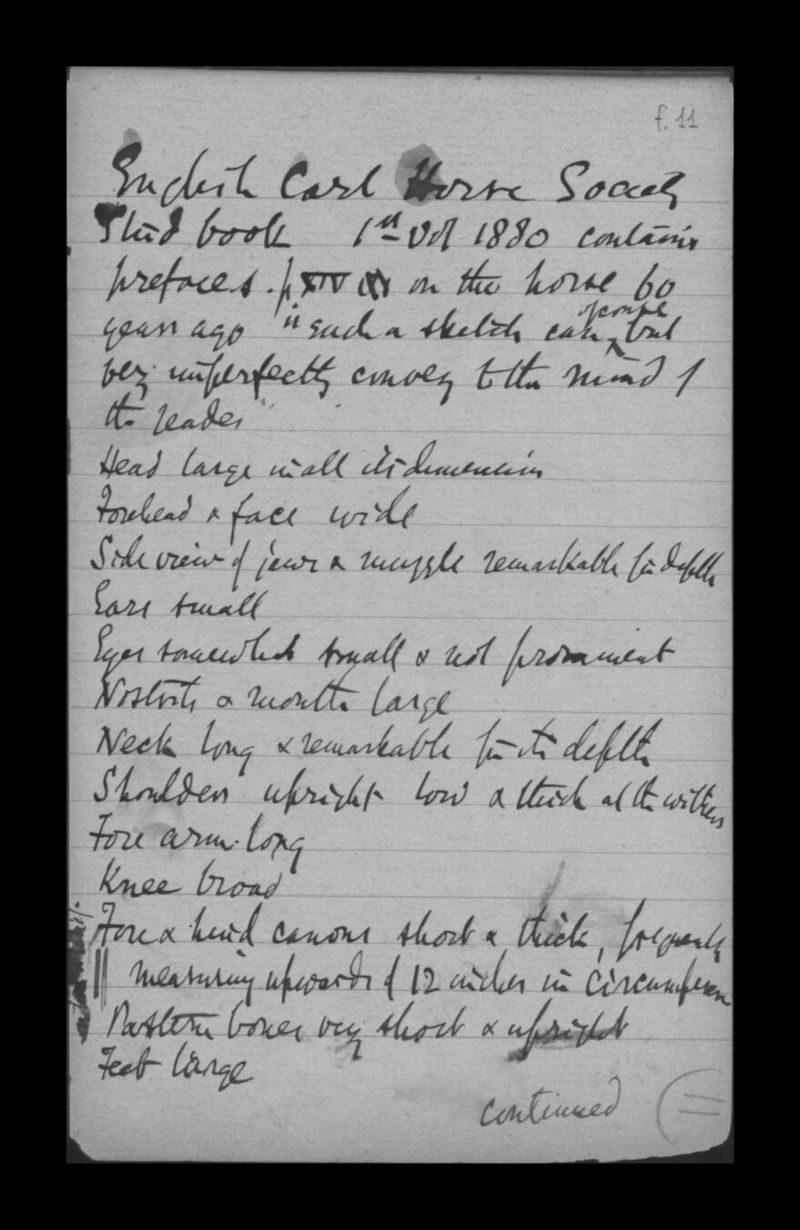 f. 11
English Cart Horse Society
Stud book 1st Vol 1880 contains
prefaces. p XIV on the horse 60
years ago "such a sketch can of course but
very imperfectly convey to the mind of
the reader"
Head large in all its dimensions
Forehead & face wide
Side view of jaws & muzzle remarkable for depth
Ears small
Eyes somewhat small & not prominent
Nostrils & mouth large
Neck long & remarkable for its depth
Shoulders upright low & thick at the withers
Fore arm long
Knee broad
Fore & hind canons short & thick, frequently
measuring upwards of 12 inches in circumference
Pastern bones very short & upright
Feet large
continued
11